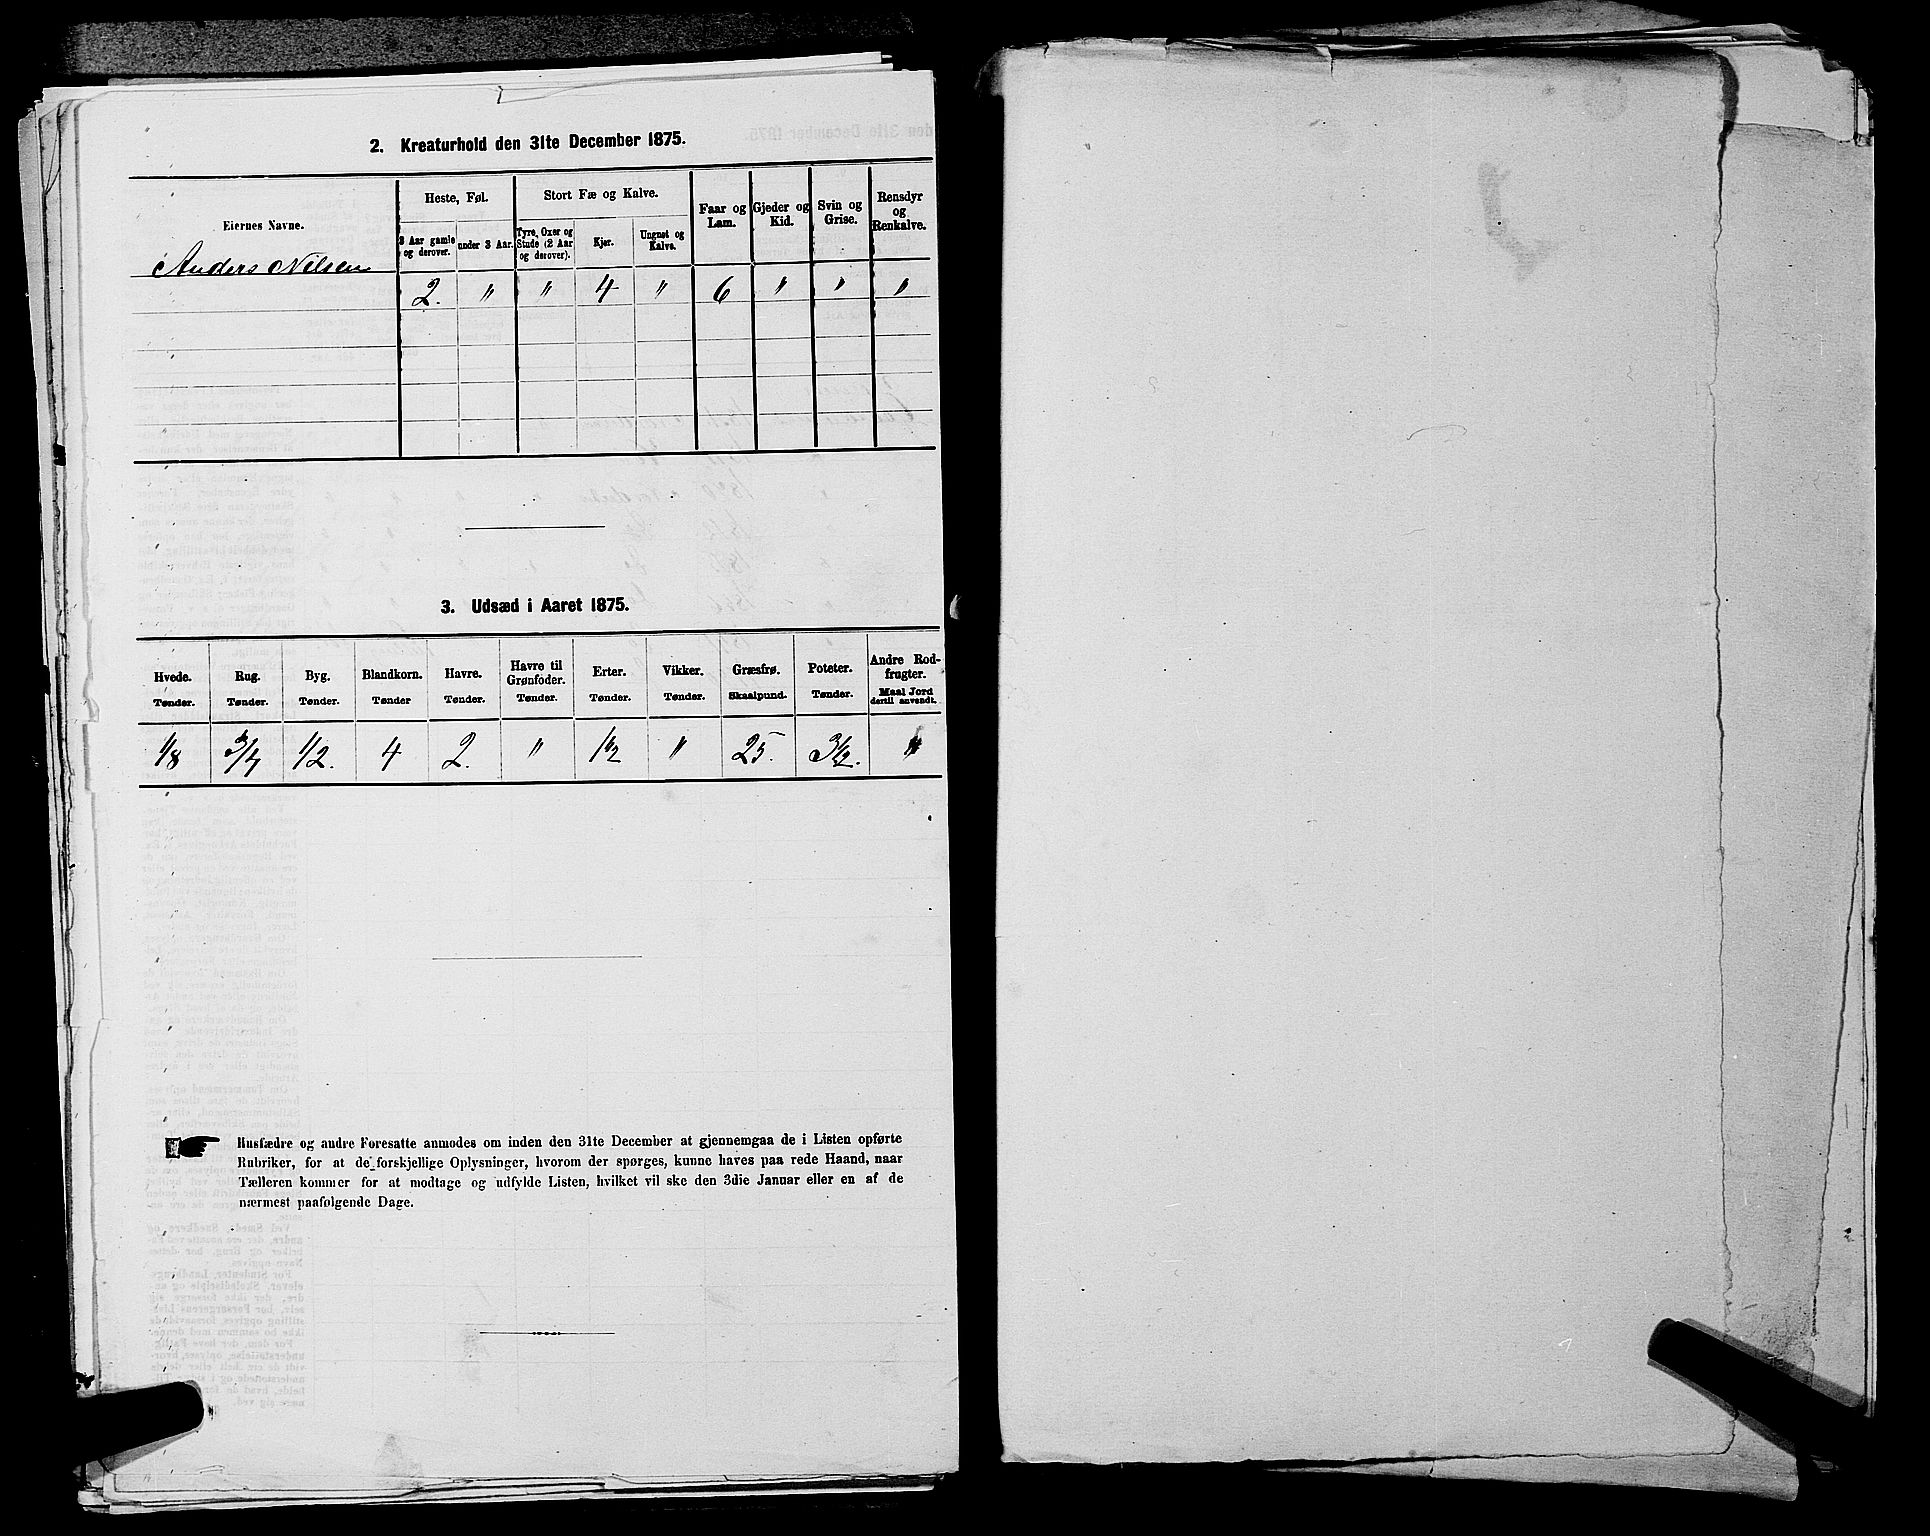 2. Kreaturhold den 31te December 1875.
Eiernes Navne.
Heste, Føl.
Stort Fæ og Kalve.
Faar og Lam.
Gjeder og Kid.
Svin og Grise.
Rensdyr og Renkalve.
3 Aar gamle og derover.
under 3 Aar.
Tyre, Oxer og Stude (2 Aar og derover).
Kjør.
Ungnøt og Kalve.
Anders Nilsen
2. " " 4 " 6 " " "
3. Udsæd i Aaret 1875.
Hvede. Rug. Byg. Blandkorn. Havre. Havre til Grønfoder. Erter. Vikker. Græsfrø. Poteter. Andre Rodfrugter.
Tønder. Tønder. Tønder. Tønder Tønder. Tønder. Tønder. Tønder. Skaalpund. Tønder. Maal Jord dertil anvendt.
1/8 3/4 1/2. 4 2. " 1 1/2 " 25. 3 1/2. "
Husfædre og andre Foresatte anmodes om inden den 31te December at gjennemgaa de i Listen opførte
Rubriker, for at de forskjellige Oplysninger, hvorom der spørges, kunne haves paa rede Haand, naar
Tælleren kommer for at modtage og udfylde Listen, hvilket vil ske den 3die Januar eller en af de
nærmest paafølgende Dage.